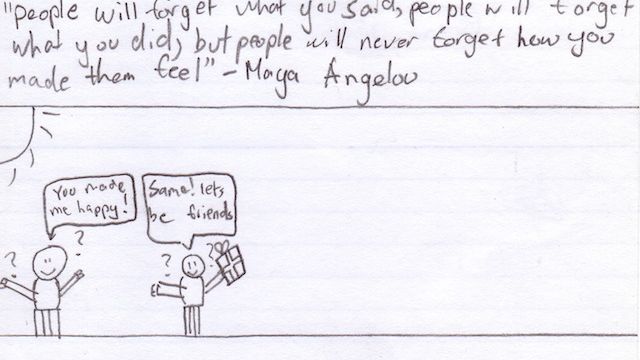 "people will forget what you said, people will forget
what you did, but people will never forget how you
made them feel" - Maya Angelou
You made
me happy!
Same! lets
be friends
?
?
?
?